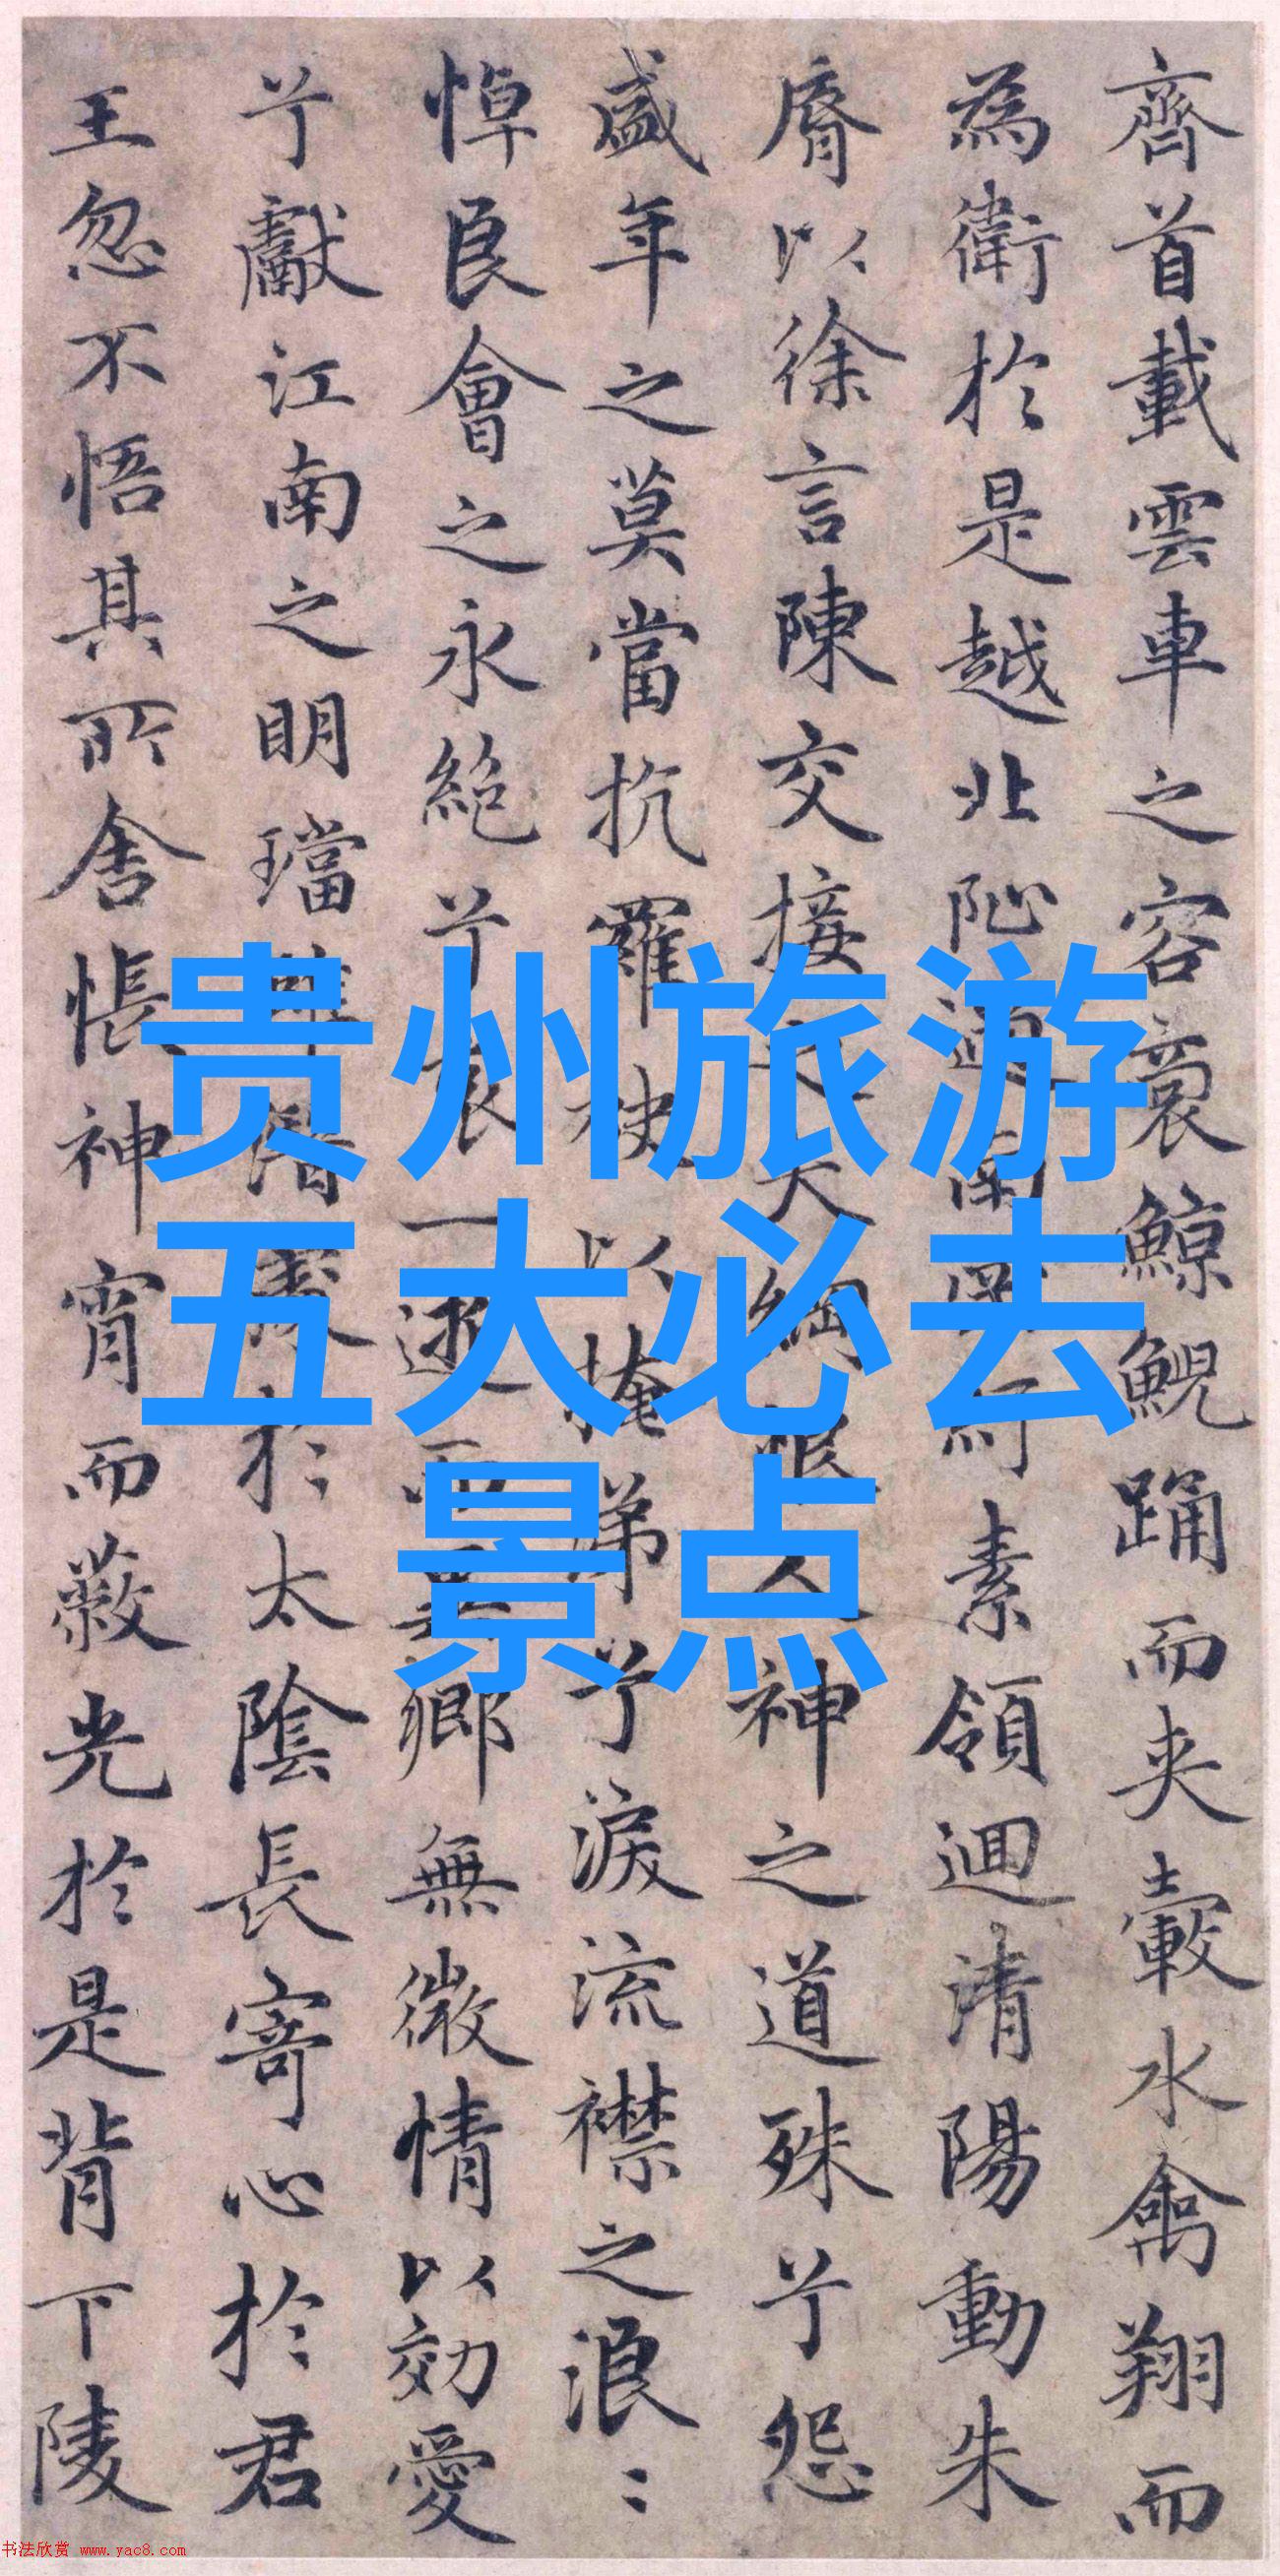 贵州旅游
五大必去
景点
齊首載雲車之容裔鯨鯢踊而夾轂水禽翔而
為衛於是越北阯過南岡紆素領迴清陽動朱
脣以徐言陳交接之大綱恨人神之道殊兮怨
盛年之莫當抗羅袂以掩涕兮淚流襟之浪〻
悼良會之永絕兮哀一逝而異鄉無微情以効愛
兮獻江南之明璫雖潛處於太陰長寄心於君
王忽不悟其所舍悵神宵而蔽光於是背下陵
书法欣赏 www.yac8.com